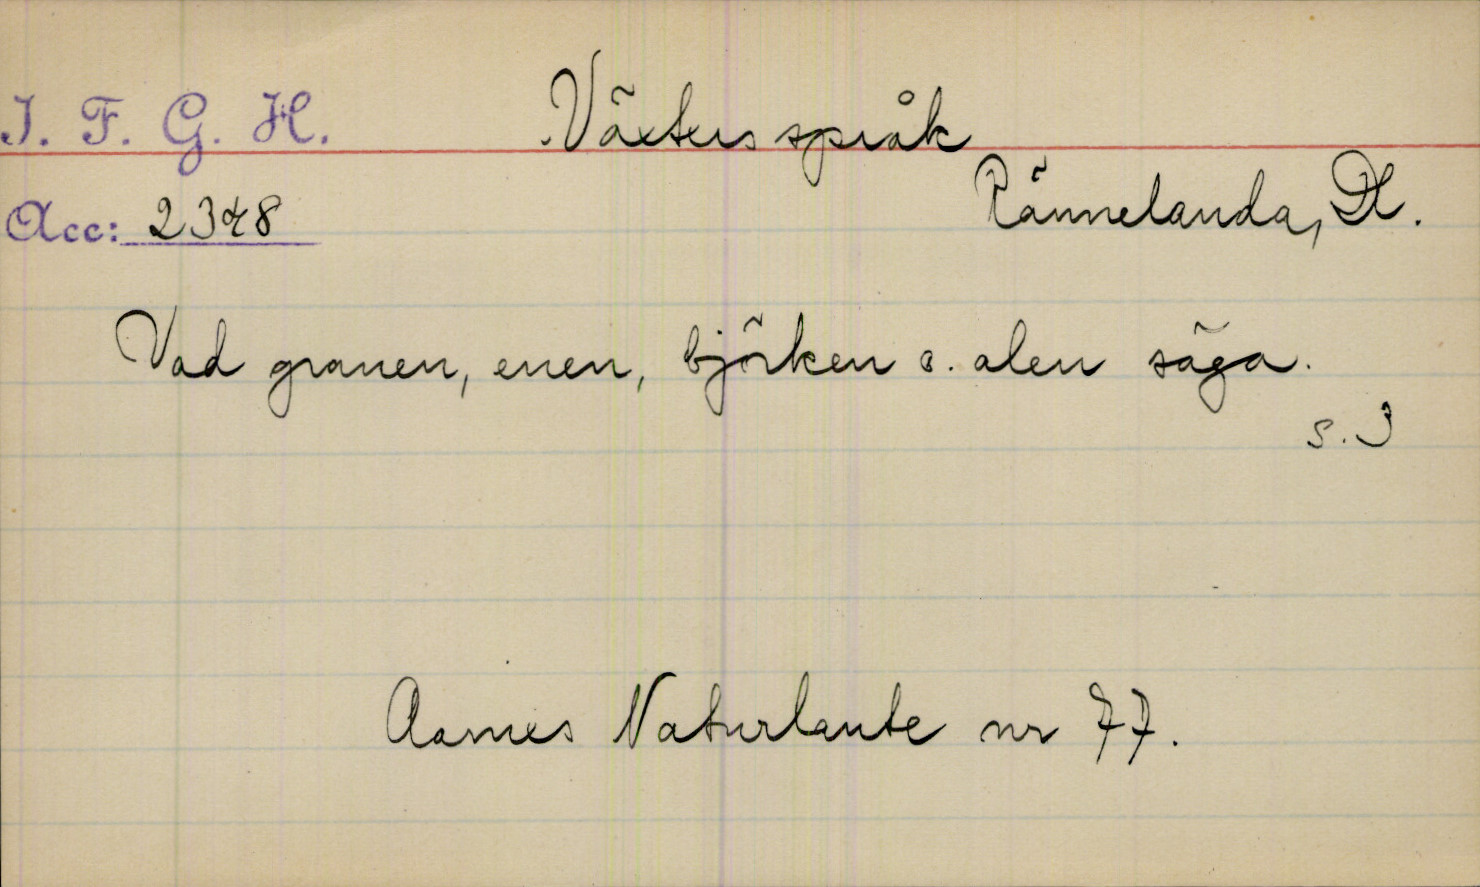 I. F. G. H.
Växters språk
Rännelanda, Dl.
Acc: 2348
Vad granen, enen, björken o. alen säga.
s. 3
Aarnes Naturlaute nr 77.